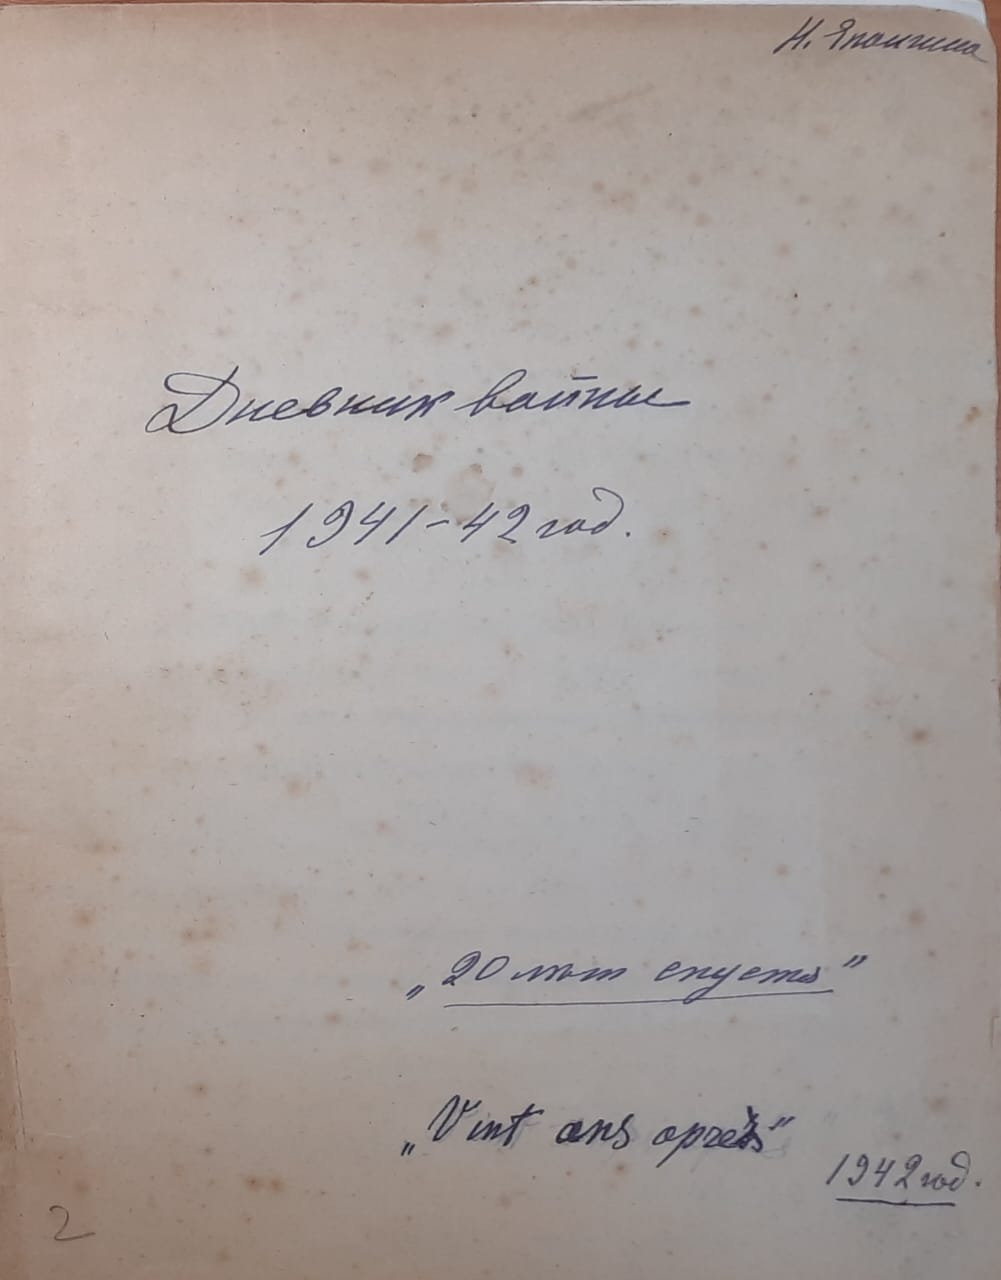 Н. Япончина
Дневник войны
1941-42 год.
„20 лѣт спустя”
„Vint ans après”
1942 год.
2